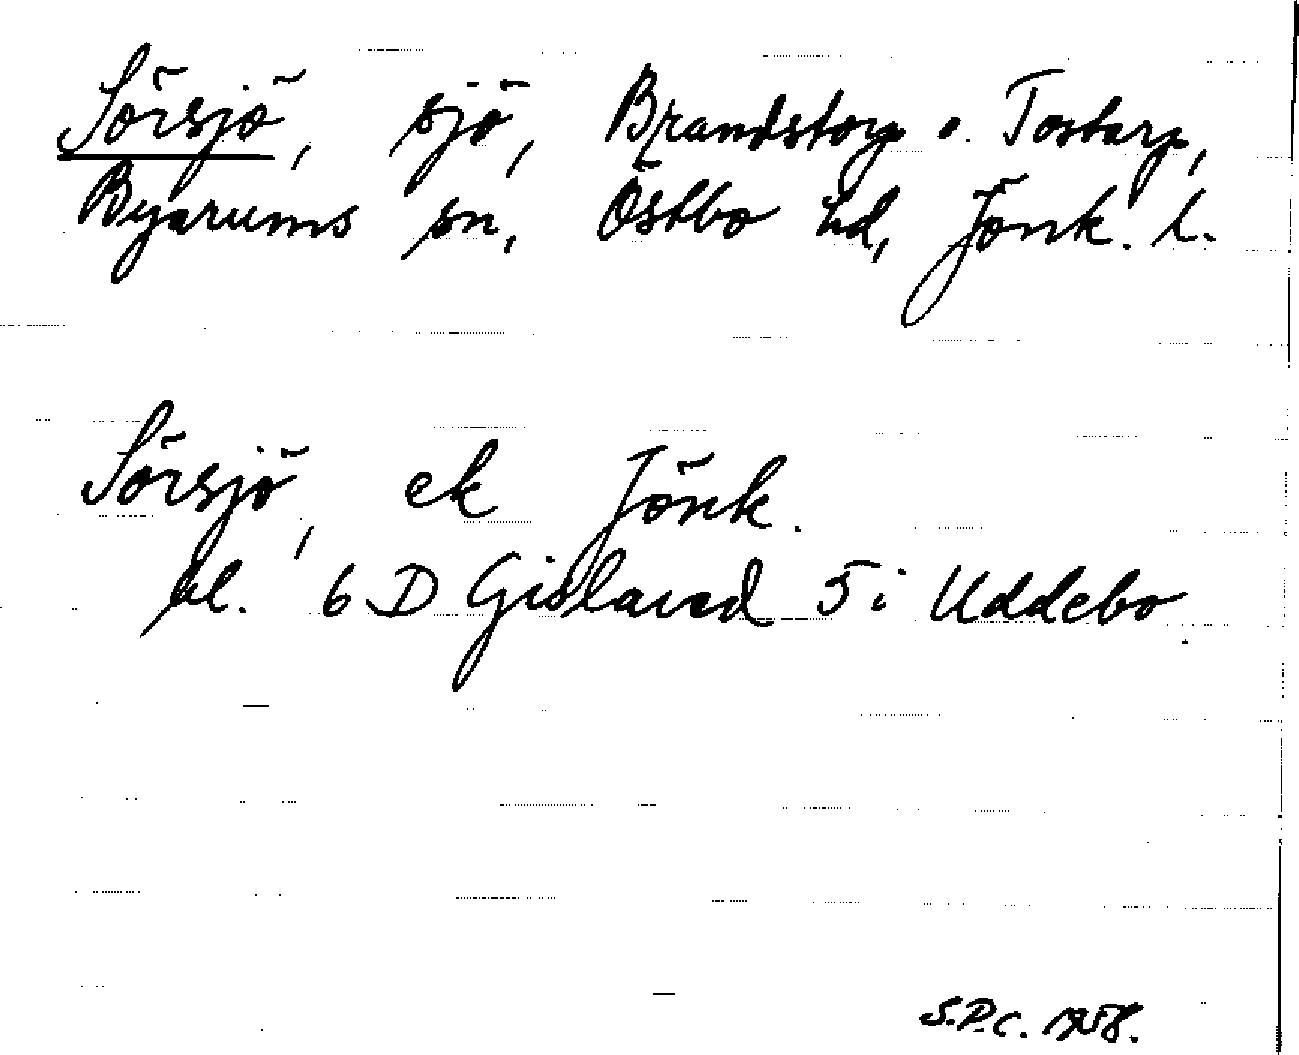 Sörsjö, sjö, Brandstorp o. Tostarp,
Byarums sn, Östbo hd, Jönk. l.
Sörsjö, ek Jönk.
bl. 6 D Gislaved 5 i Uddebo.
S.P.C. 1958.